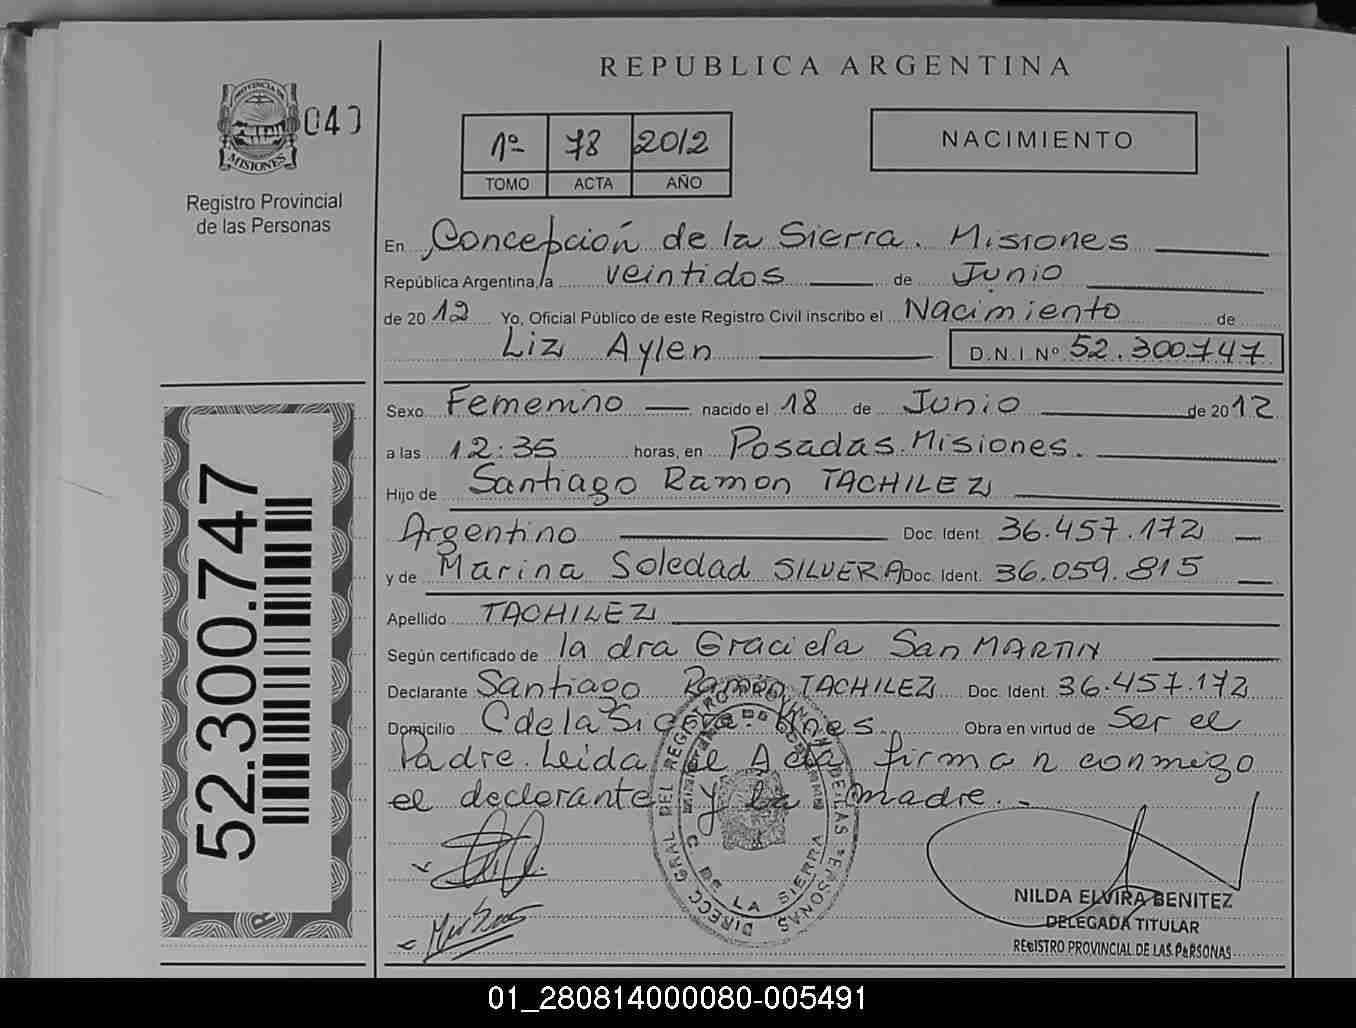 REPUBLICA ARGENTINA
PROVINCIA DE
MISIONES
040
Registro Provincial
de las Personas
1º 78 2012
TOMO ACTA AÑO
NACIMIENTO
En Concepción de la Sierra. Misiones
República Argentina, a veintidos de Junio
de 2012 Yo, Oficial Público de este Registro Civil inscribo el Nacimiento de
Liz Aylen D.N.I. Nº 52.300.747
Sexo Femenino nacido el 18 de Junio de 2012
a las 12:35 horas, en Posadas. Misiones.
Hijo de Santiago Ramon TACHILEZ
Argentino Doc. Ident. 36.457.172
y de Marina Soledad SILVERA Doc. Ident. 36.059.815
Apellido TACHILEZ
Según certificado de la dra Graciela San MARTIN
Declarante Santiago Ramon TACHILEZ Doc. Ident. 36.457.172
Domicilio C de la Sierra. Mnes. Obra en virtud de Ser el
Padre. Leida el Acta firman conmigo
el declarante y la madre.
52.300.747
DIRECC. GRAL. DEL REGISTRO PROVINCIAL DE LAS PERSONAS
C. DE LA SIERRA
NILDA ELVIRA BENITEZ
DELEGADA TITULAR
REGISTRO PROVINCIAL DE LAS PERSONAS
01_280814000080-005491